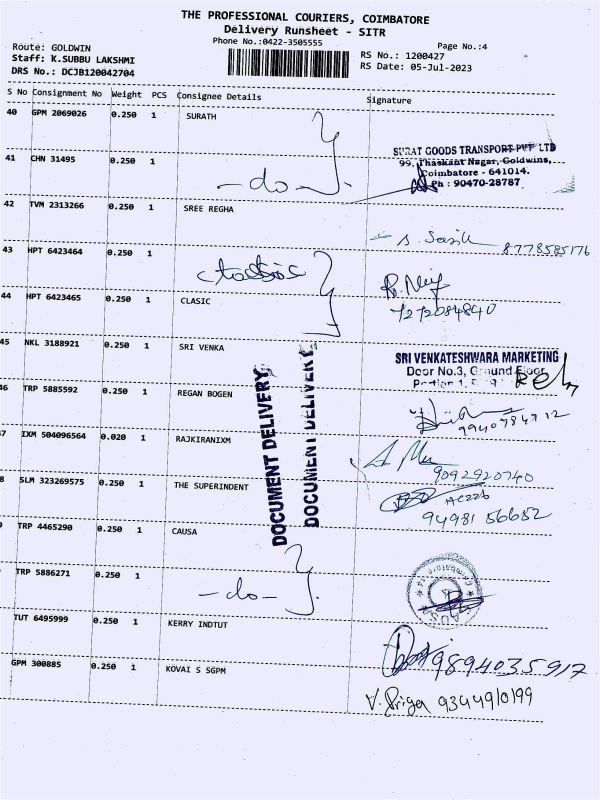 THE PROFESSIONAL COURIERS, COIMBATORE
Delivery Runsheet - SITR
Phone No.:0422-3505555
Page No.:4
Route: GOLDWIN
Staff: K.SUBBU LAKSHMI
DRS No.: DCJB120042704
RS No.: 1200427
RS Date: 05-Jul-2023
S No Consignment No Weight PCS Consignee Details Signature
40 GPM 2069026 0.250 1 SURATH
SURAT GOODS TRANSPORT PVT LTD
99, Thaskant Nagar, Goldwins,
Coimbatore - 641014.
Ph : 90470-28787
41 CHN 31495 0.250 1
-do-
42 TVM 2313266 0.250 1 SREE REGHA
S. Sasik 8778585176
43 HPT 6423464 0.250 1
44 HPT 6423465 0.250 1 CLASIC
7272084840
45 NKL 3188921 0.250 1 SRI VENKA
SRI VENKATESHWARA MARKETING
Door No.3, Ground Floor,
Portion 1,
46 TRP 5885592 0.250 1 REGAN BOGEN
9940784712
DOCUMENT DELIVERY
DOCUMENT DELIVERY
47 IXM 504096564 0.020 1 RAJKIRANIXM
9092920740
8 SLM 323269575 0.250 1 THE SUPERINDENT
94981 56652
TRP 4465290 0.250 1 CAUSA
TRP 5886271 0.250 1
-do-
TUT 6495999 0.250 1 KERRY INDTUT
9894035917
GPM 300885 0.250 1 KOVAI S SGPM
V. Priya 9344910199